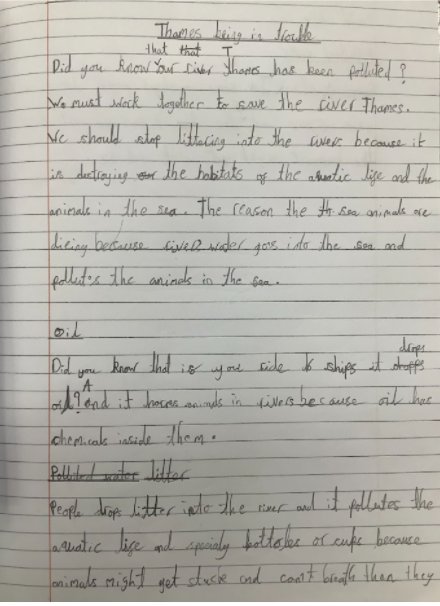 Thames being in trouble
that that T
Did you know Your river Thames has been polluted?
We must work together to save the river Thames.
We should stop littering into the rivers because it
is destroying the habitats of the aquatic life and the
animals in the sea. The reason the th sea animals are
dieing because river water goes into the sea and
pollutes the animals in the sea.
Oil
drops
Did you know that if you ride ships it
oil? A and it harms animals in rivers because oil has
chemicals inside them.
Polluted water litter
People drops litter into the river and it pollutes the
aquatic life and specialy or cups because
animals might get stuck and can't breath than they